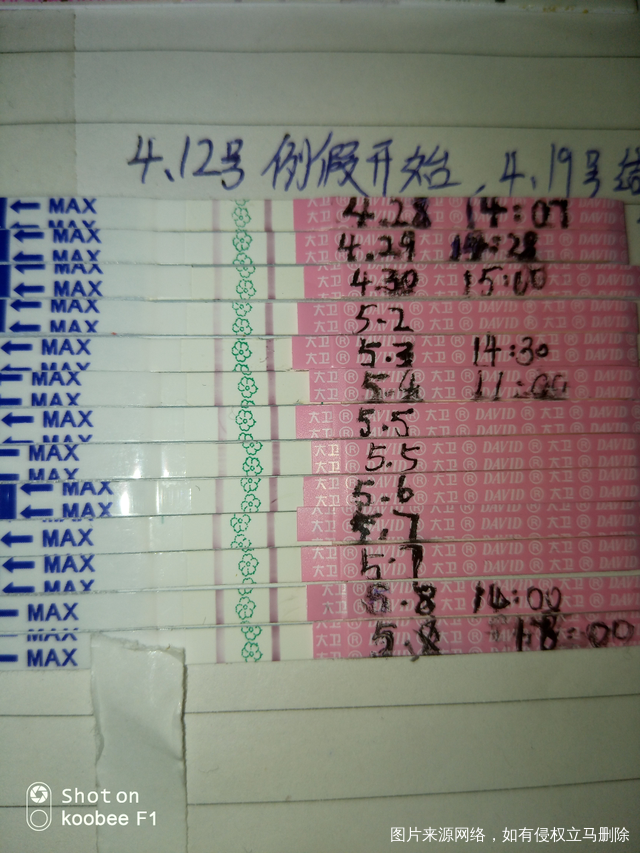 4.12号 例假开始，4.19号结
MAX 4.28 14:07
MAX 4.29 14:28
MAX 4.30 15:00
MAX 5.2
MAX 5.3 14:30
MAX 5.4 11:00
MAX 5.5
MAX 5.5
MAX 5.6
MAX 5.7
MAX 5.7
MAX 5.8 14:00
MAX 5.8 18:00
大卫® DAVID®
Shot on
koobee F1
图片来源网络，如有侵权立马删除